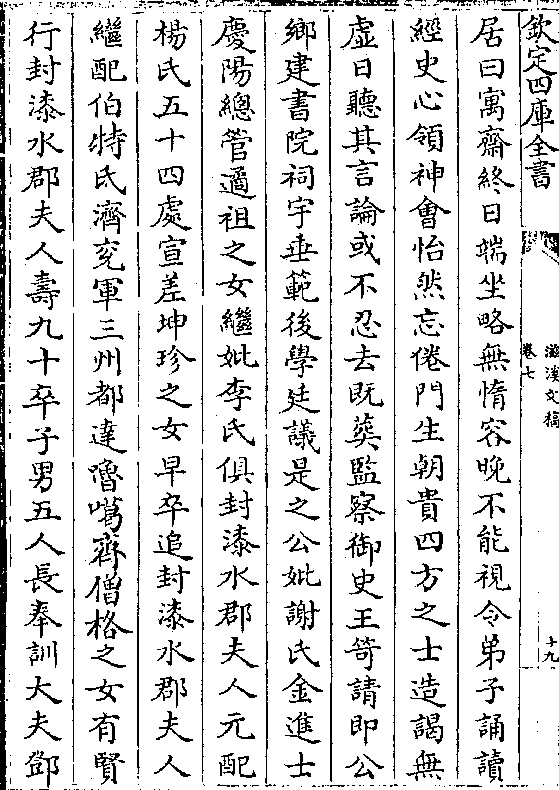 欽定四庫全書
滋溪文稿
卷七
十九
居曰寓齋終日端坐略無惰容晚不能視令弟子誦讀
經史心領神會怡然忘倦門生朝貴四方之士造謁無
虛日聽其言論或不忍去既葬監察御史王笴請即公
鄉建書院祠宇垂範後學廷議是之公妣謝氏金進士
慶陽總管遹祖之女繼妣李氏俱封漆水郡夫人元配
楊氏五十四處宣差坤珍之女早卒追封漆水郡夫人
繼配伯特氏濟兖軍三州都達嚕噶齊僧格之女有賢
行封漆水郡夫人壽九十卒子男五人長奉訓大夫鄧